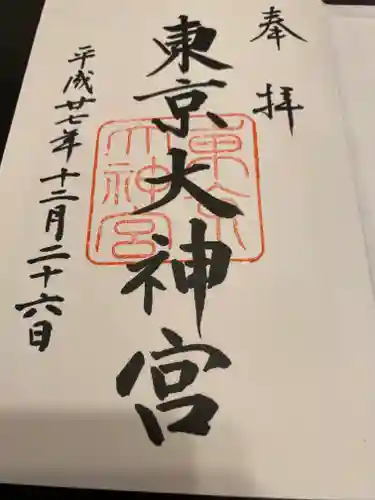 奉拝
東京大神宮
東京大神宮
平成廿七年十二月二十六日